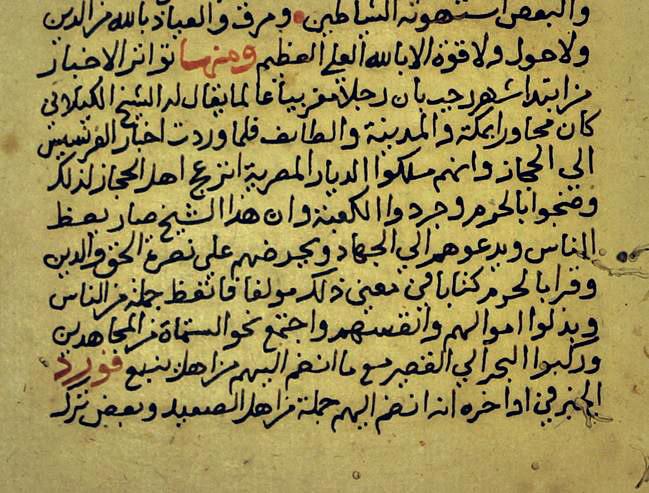 والبعض استهوته الشياطين ومرق والعياذ بالله من الدين
ولا حول ولا قوة الا بالله العلي العظيم ومنها تواتر الاخبار
من ابتدا شهر رجب بان رجلا مغربيا عالما يقال له الشيخ الكيلاني
كان مجاورا بمكة والمدينة والطايف فلما وردت اخبار الفرنسيس
الي الحجاز وانهم ملكوا الديار المصرية انزعج اهل الحجاز لذلك
وضجوا بالحرم وجردوا الكعبة وان هذا الشيخ صار يعظ
الناس ويدعوهم الي الجهاد ويحرضهم علي نصرة الحق والدين
وقرا بالحرم كتابا في معني ذلك مولفا فاتعظ جملة من الناس
وبذلوا اموالهم وانفسهم واجتمع نحو الستماة من المجاهدين
وركبوا البحر الي القصير مع ما انضم اليهم من اهل ينبع فورد
الخبر في اواخره انه انضم اليهم جملة من اهل الصعيد وبعض ترك